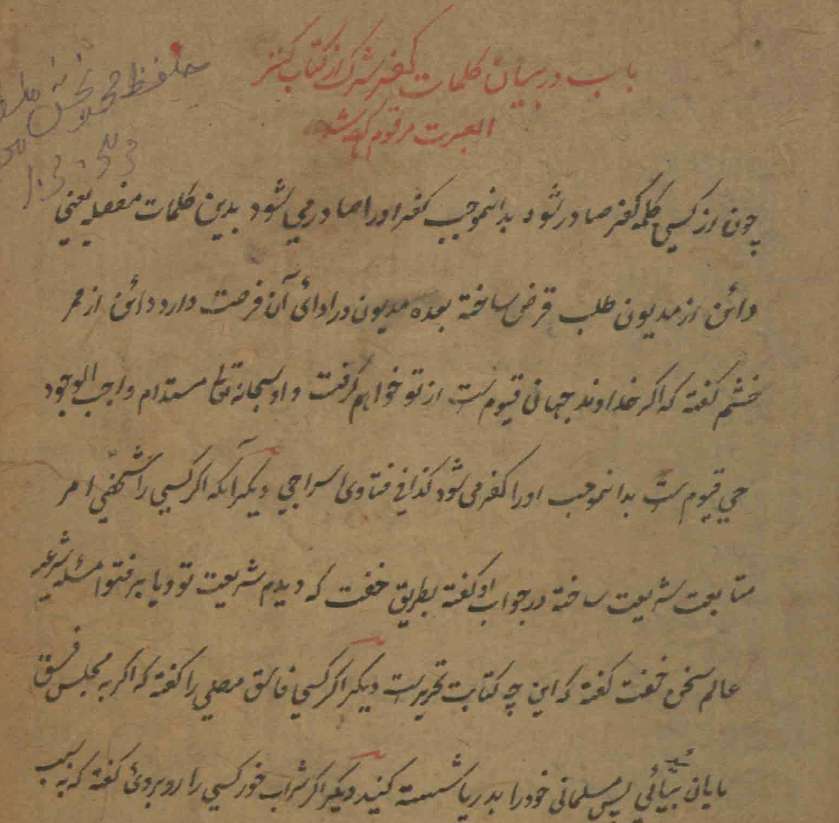 باب در بیان کلمات کفر شرک از کتاب کنز
العبرت مرقوم
حافظ محمد
چون از کسی کلمه کفر صادر شود بدانموجب کفر او را صادر می شود بدین کلمات مفصله یعنی
دائن از مدیون طلب قرض ساخته بعده مدیون در ادائی آن فرصت دارد دائن از مر
خشم گفته که اگر خداوند جهانی قیوم است از تو خواهم گرفت و او سبحانه تعالی مستدام واجب الوجود
حی قیوم است بدانموجب او را کفر می شود کذا فی فتاوی سراجی دیگر آنکه اگر کسی را شخصی امر
متابعت شریعت ساخته در جواب او گفته بطریق خفت که دیدم شریعت تو و یا بر فتوا مسئله شرعیه
عالم سخن خفت گفته که این چه کتابت تحریر است دیگر اگر کسی فاسق مصلی را گفته که اگر به مجلس فسق
یایان بیائی پس مسلمانی خود را بدریا شسته کنید دیگر اگر شراب خور کسی را روبروئ گفته که به سبب